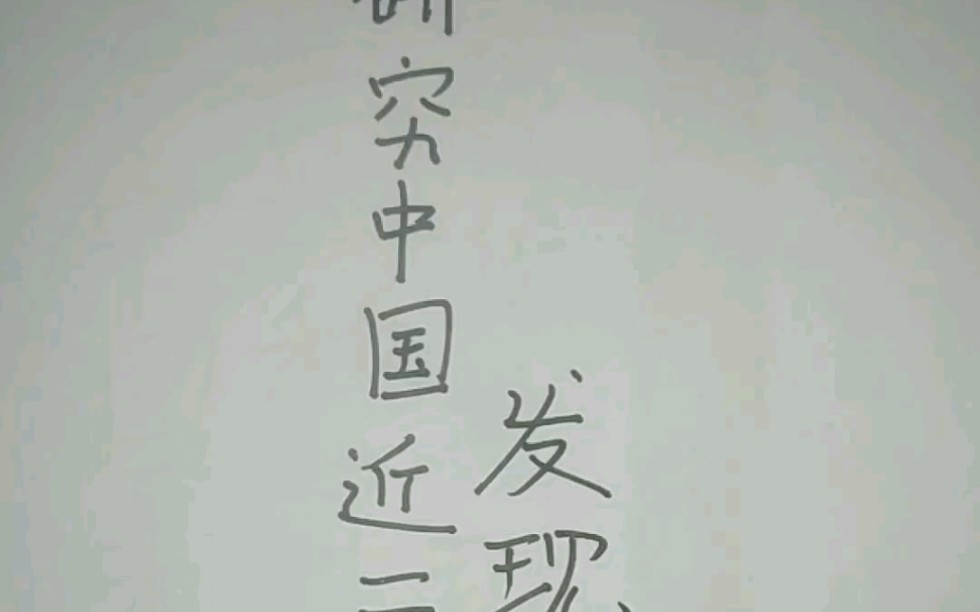 研究中国近
发现